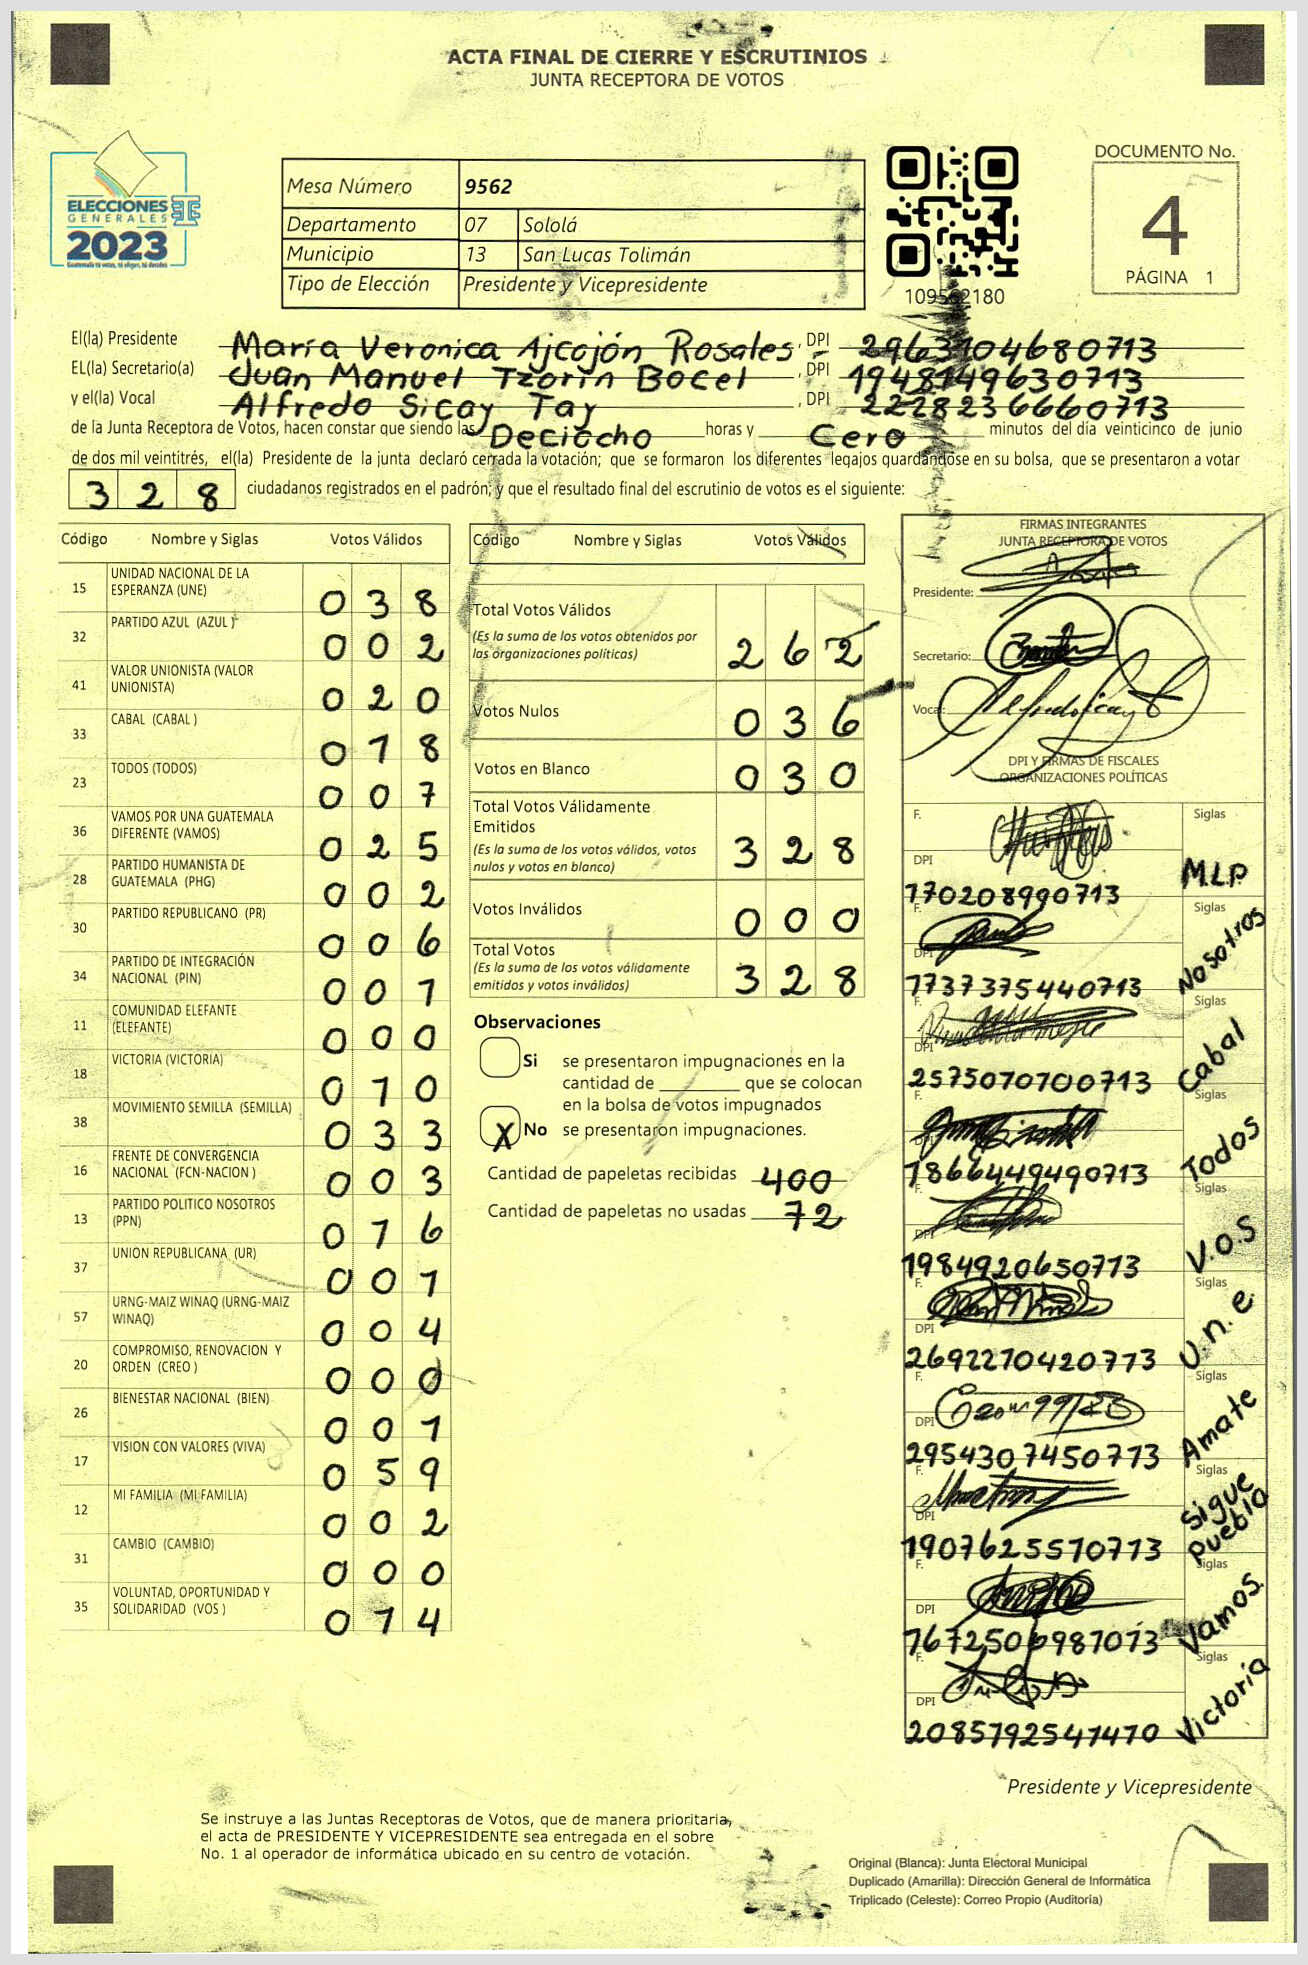 ACTA FINAL DE CIERRE Y ESCRUTINIOS
JUNTA RECEPTORA DE VOTOS
ELECCIONES
GENERALES
2023
Guatemala tú votas, tú eliges, tú decides
Mesa Número 9562
Departamento 07 Sololá
Municipio 13 San Lucas Tolimán
Tipo de Elección Presidente y Vicepresidente
109562180
DOCUMENTO No.
4
PÁGINA 1
El(la) Presidente María Veronica Ajcojón Rosales, DPI 2963104680713
EL(la) Secretario(a) Juan Manuel Tzorín Bocel, DPI 1948149630713
y el(la) Vocal Alfredo Sicay Tay, DPI 2228236660713
de la Junta Receptora de Votos, hacen constar que siendo las Deciocho horas y Cero minutos del día veinticinco de junio
de dos mil veintitrés, el(la) Presidente de la junta declaró cerrada la votación; que se formaron los diferentes legajos guardándose en su bolsa, que se presentaron a votar
328 ciudadanos registrados en el padrón; y que el resultado final del escrutinio de votos es el siguiente:
Código Nombre y Siglas Votos Válidos
15 UNIDAD NACIONAL DE LA ESPERANZA (UNE) 038
32 PARTIDO AZUL (AZUL ) 002
41 VALOR UNIONISTA (VALOR UNIONISTA) 020
33 CABAL (CABAL ) 018
23 TODOS (TODOS) 007
36 VAMOS POR UNA GUATEMALA DIFERENTE (VAMOS) 025
28 PARTIDO HUMANISTA DE GUATEMALA (PHG) 002
30 PARTIDO REPUBLICANO (PR) 006
34 PARTIDO DE INTEGRACIÓN NACIONAL (PIN) 001
11 COMUNIDAD ELEFANTE (ELEFANTE) 000
18 VICTORIA (VICTORIA) 010
38 MOVIMIENTO SEMILLA (SEMILLA) 033
16 FRENTE DE CONVERGENCIA NACIONAL (FCN-NACION ) 003
13 PARTIDO POLITICO NOSOTROS (PPN) 016
37 UNION REPUBLICANA (UR) 001
57 URNG-MAIZ WINAQ (URNG-MAIZ WINAQ) 004
20 COMPROMISO, RENOVACION Y ORDEN (CREO ) 000
26 BIENESTAR NACIONAL (BIEN) 001
17 VISION CON VALORES (VIVA) 059
12 MI FAMILIA (MI FAMILIA) 002
31 CAMBIO (CAMBIO) 000
35 VOLUNTAD, OPORTUNIDAD Y SOLIDARIDAD (VOS ) 014
Código Nombre y Siglas Votos Válidos
Total Votos Válidos 262
(Es la suma de los votos obtenidos por
las organizaciones políticas)
Votos Nulos 036
Votos en Blanco 030
Total Votos Válidamente
Emitidos 328
(Es la suma de los votos válidos, votos
nulos y votos en blanco)
Votos Inválidos 000
Total Votos 328
(Es la suma de los votos válidamente
emitidos y votos inválidos)
Observaciones
Si se presentaron impugnaciones en la
cantidad de ________ que se colocan
en la bolsa de votos impugnados
X No se presentaron impugnaciones.
Cantidad de papeletas recibidas 400
Cantidad de papeletas no usadas 72
FIRMAS INTEGRANTES
JUNTA RECEPTORA DE VOTOS
Presidente:
Secretario:
Vocal:
DPI Y FIRMAS DE FISCALES
ORGANIZACIONES POLÍTICAS
F. Siglas
DPI 170208990713 M.L.P.
F. Siglas
DPI 1737375440713 Nosotros
F. Siglas
DPI 2575070700713 Cabal
F. Siglas
DPI 1866449490713 Todos
F. Siglas
DPI 1984920650713 V.O.S
F. Siglas
DPI 2692270420713 U.n.e.
F. Siglas
DPI 2954307450713 Amate
F. Siglas
DPI 1907625570713 Sigue Pueblo
F. Siglas
DPI Vamos.
F. Siglas
DPI 2085792541410 Victoria
Presidente y Vicepresidente
Se instruye a las Juntas Receptoras de Votos, que de manera prioritaria,
el acta de PRESIDENTE Y VICEPRESIDENTE sea entregada en el sobre
No. 1 al operador de informática ubicado en su centro de votación.
Original (Blanca): Junta Electoral Municipal
Duplicado (Amarilla): Dirección General de Informática
Triplicado (Celeste): Correo Propio (Auditoría)